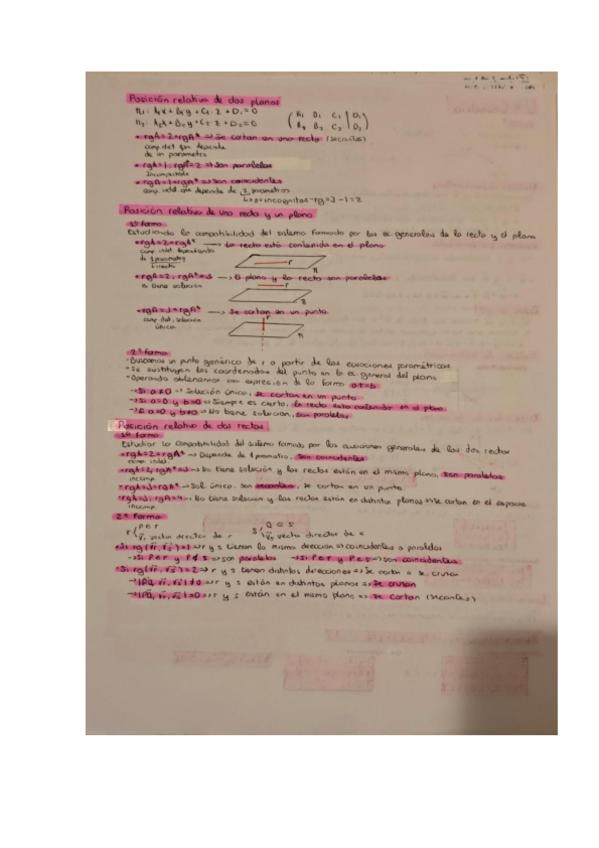 Posición relativa de dos planos
π₁: A₁x + B₁y + C₁z + D₁ = 0
π₂: A₂x + B₂y + C₂z + D₂ = 0
(A₁ B₁ C₁ | D₁
A₂ B₂ C₂ | D₂)
• rgA = 2 = rgA* ⇒ Se cortan en una recta (secantes)
comp. indet. que depende
de un parametro
• rgA = 1, rgA* = 2 ⇒ Son paralelos
Incompatible
• rgA = 1 = rgA* ⇒ Son coincidentes
comp. indet. que depende de 2 parametros
↳ p = incognitas - rg = 3 - 1 = 2
Posición relativa de una recta y un plano
1ª forma
Estudiando la compatibilidad del sistema formado por las ec. generales de la recta y el plano
• rgA = 2 = rgA* → La recta está contenida en el plano
comp. indet. dependiendo
de 1 parametro
r
π
• rgA = 2, rgA* = 3 → El plano y la recta son paralelos
No tiene solución
r
π
• rgA = 3 = rgA* → Se cortan en un punto
comp. det., solución
única
r
π
2ª forma
- Buscamos un punto genérico de r a partir de las ecuaciones paramétricas
- Se sustituyen las coordenadas del punto en la ec. general del plano
- Operando obtenemos una expresión de la forma at = b
→ Si a ≠ 0 → Solución única, se cortan en un punto
→ Si a = 0 y b = 0 → Siempre es cierto, la recta esta contenida en el plano
→ Si a = 0 y b ≠ 0 → No tiene solución, son paralelos
Posición relativa de dos rectas
1ª forma
Estudiar la compatibilidad del sistema formado por las ecuaciones generales de las dos rectas
• rgA = 2 = rgA* → Depende de 1 parametro, son coincidentes
comp. indet.
• rgA = 2, rgA* = 3 → No tiene solución y las rectas están en el mismo plano, son paralelas
incomp.
• rgA = 3 = rgA* → Sol. única. son secantes, se cortan en un punto
• rgA = 3, rgA* = 4 → No tiene solucion y las rectas están en distintos planos ⇒ se cortan en el espacio
incomp.
2ª Forma
r { P ∈ r   s { Q ∈ s
v⃗r vector director de r   v⃗s vector director de s
• Si rg(v⃗r, v⃗s) = 1 ⇒ r y s tienen la misma dirección ⇒ coincidentes o paralelas
→ Si P ∈ r y P ∉ s ⇒ son paralelas → Si P ∈ r y P ∈ s ⇒ son coincidentes
• Si rg(v⃗r, v⃗s) = 2 ⇒ r y s tienen distintas direcciones ⇒ Se cortan o se cruzan
→ |PQ, v⃗r, v⃗s| ≠ 0 ⇒ r y s están en distintos planos ⇒ Se cruzan
→ |PQ, v⃗r, v⃗s| = 0 ⇒ r y s están en el mismo plano ⇒ se cortan (secantes)